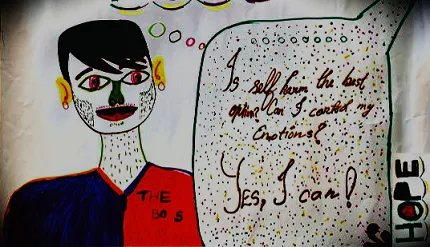 Is self harm the best
option? Can I control my
Emotions?
Yes, I can!
THE
BO S
HOPE